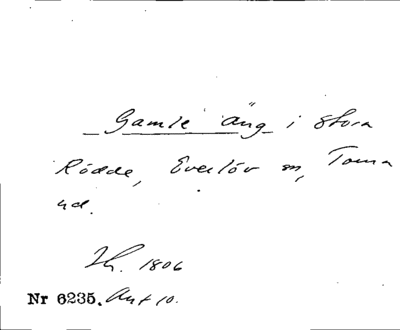 Gamle äng i Stora
Rödde, Everlöv sn, Torna
hd.
Lh. 1806
Nr 6235. Akt 10.